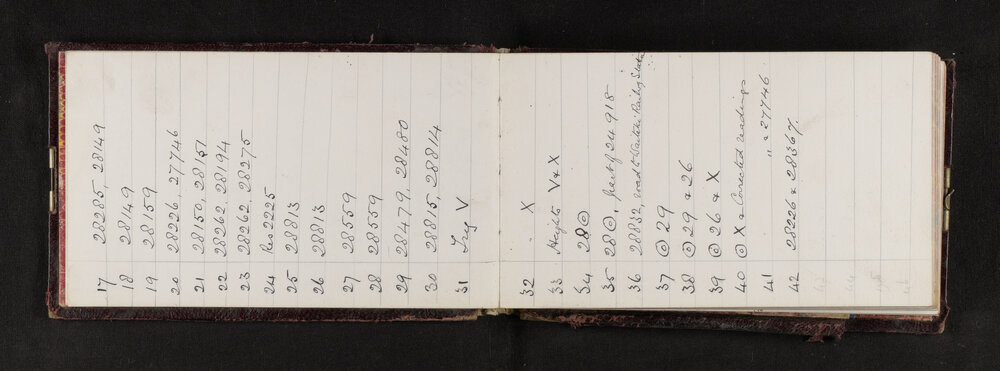 17 28285, 28149
18 28149
19 28159
20 28226, 27746
21 28150, 28151
22 28262, 28194
23 28262, 28275
24 Res 2225
25 28813
26 28813
27 28559
28 28559
29 28479, 28480
30 28815, 28814
31 Trig V
32 " X
33 Heights V & X
34 28 ⊙
35 28 ⊙, part of 24918
36 28832, road to Waitaki Railway Station
37 ⊙ 29
38 ⊙ 29 & 26
39 ⊙ 26 & X
40 ⊙ X & Corrected readings
41 " & 27746
42 28226 & 28367.
43
44
45
46